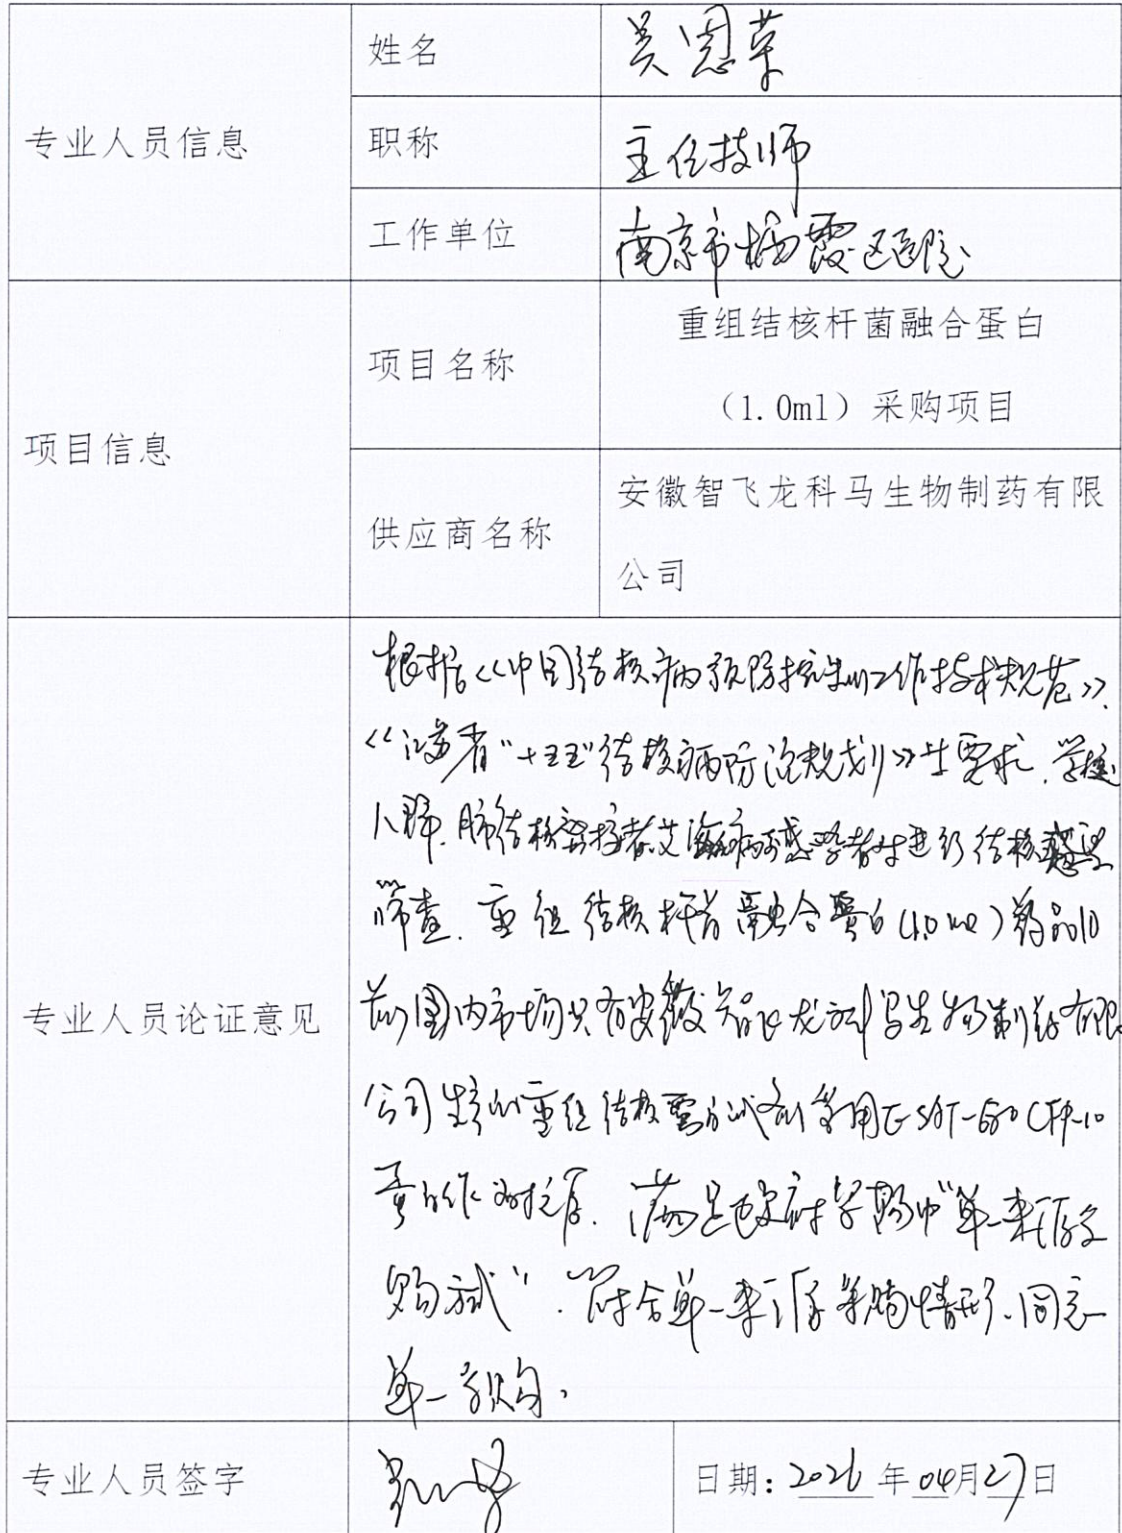 专业人员信息
姓名
吴恩草
职称
主任技师
工作单位
南京市栖霞区医院
项目信息
项目名称
重组结核杆菌融合蛋白
(1.0ml)采购项目
供应商名称
安徽智飞龙科马生物制药有限
公司
专业人员论证意见
根据《中国结核病预防控制工作技术规范》、
《江苏省"十五五"结核病防治规划》等要求,学校
人群、肺结核密接者艾滋病感染者进行结核
筛查、重组结核杆菌融合蛋白(1.0ml)药品目
前国内市场只有安徽智飞龙科马生物制药有限
公司生产的重组结核蛋白试剂采用E-SAT-6和CFP-10
蛋白作为抗原、满足政府采购中"单一来源采
购方式"、符合单一来源采购情形、同意
单一采购。
专业人员签字
日期:2026年04月27日